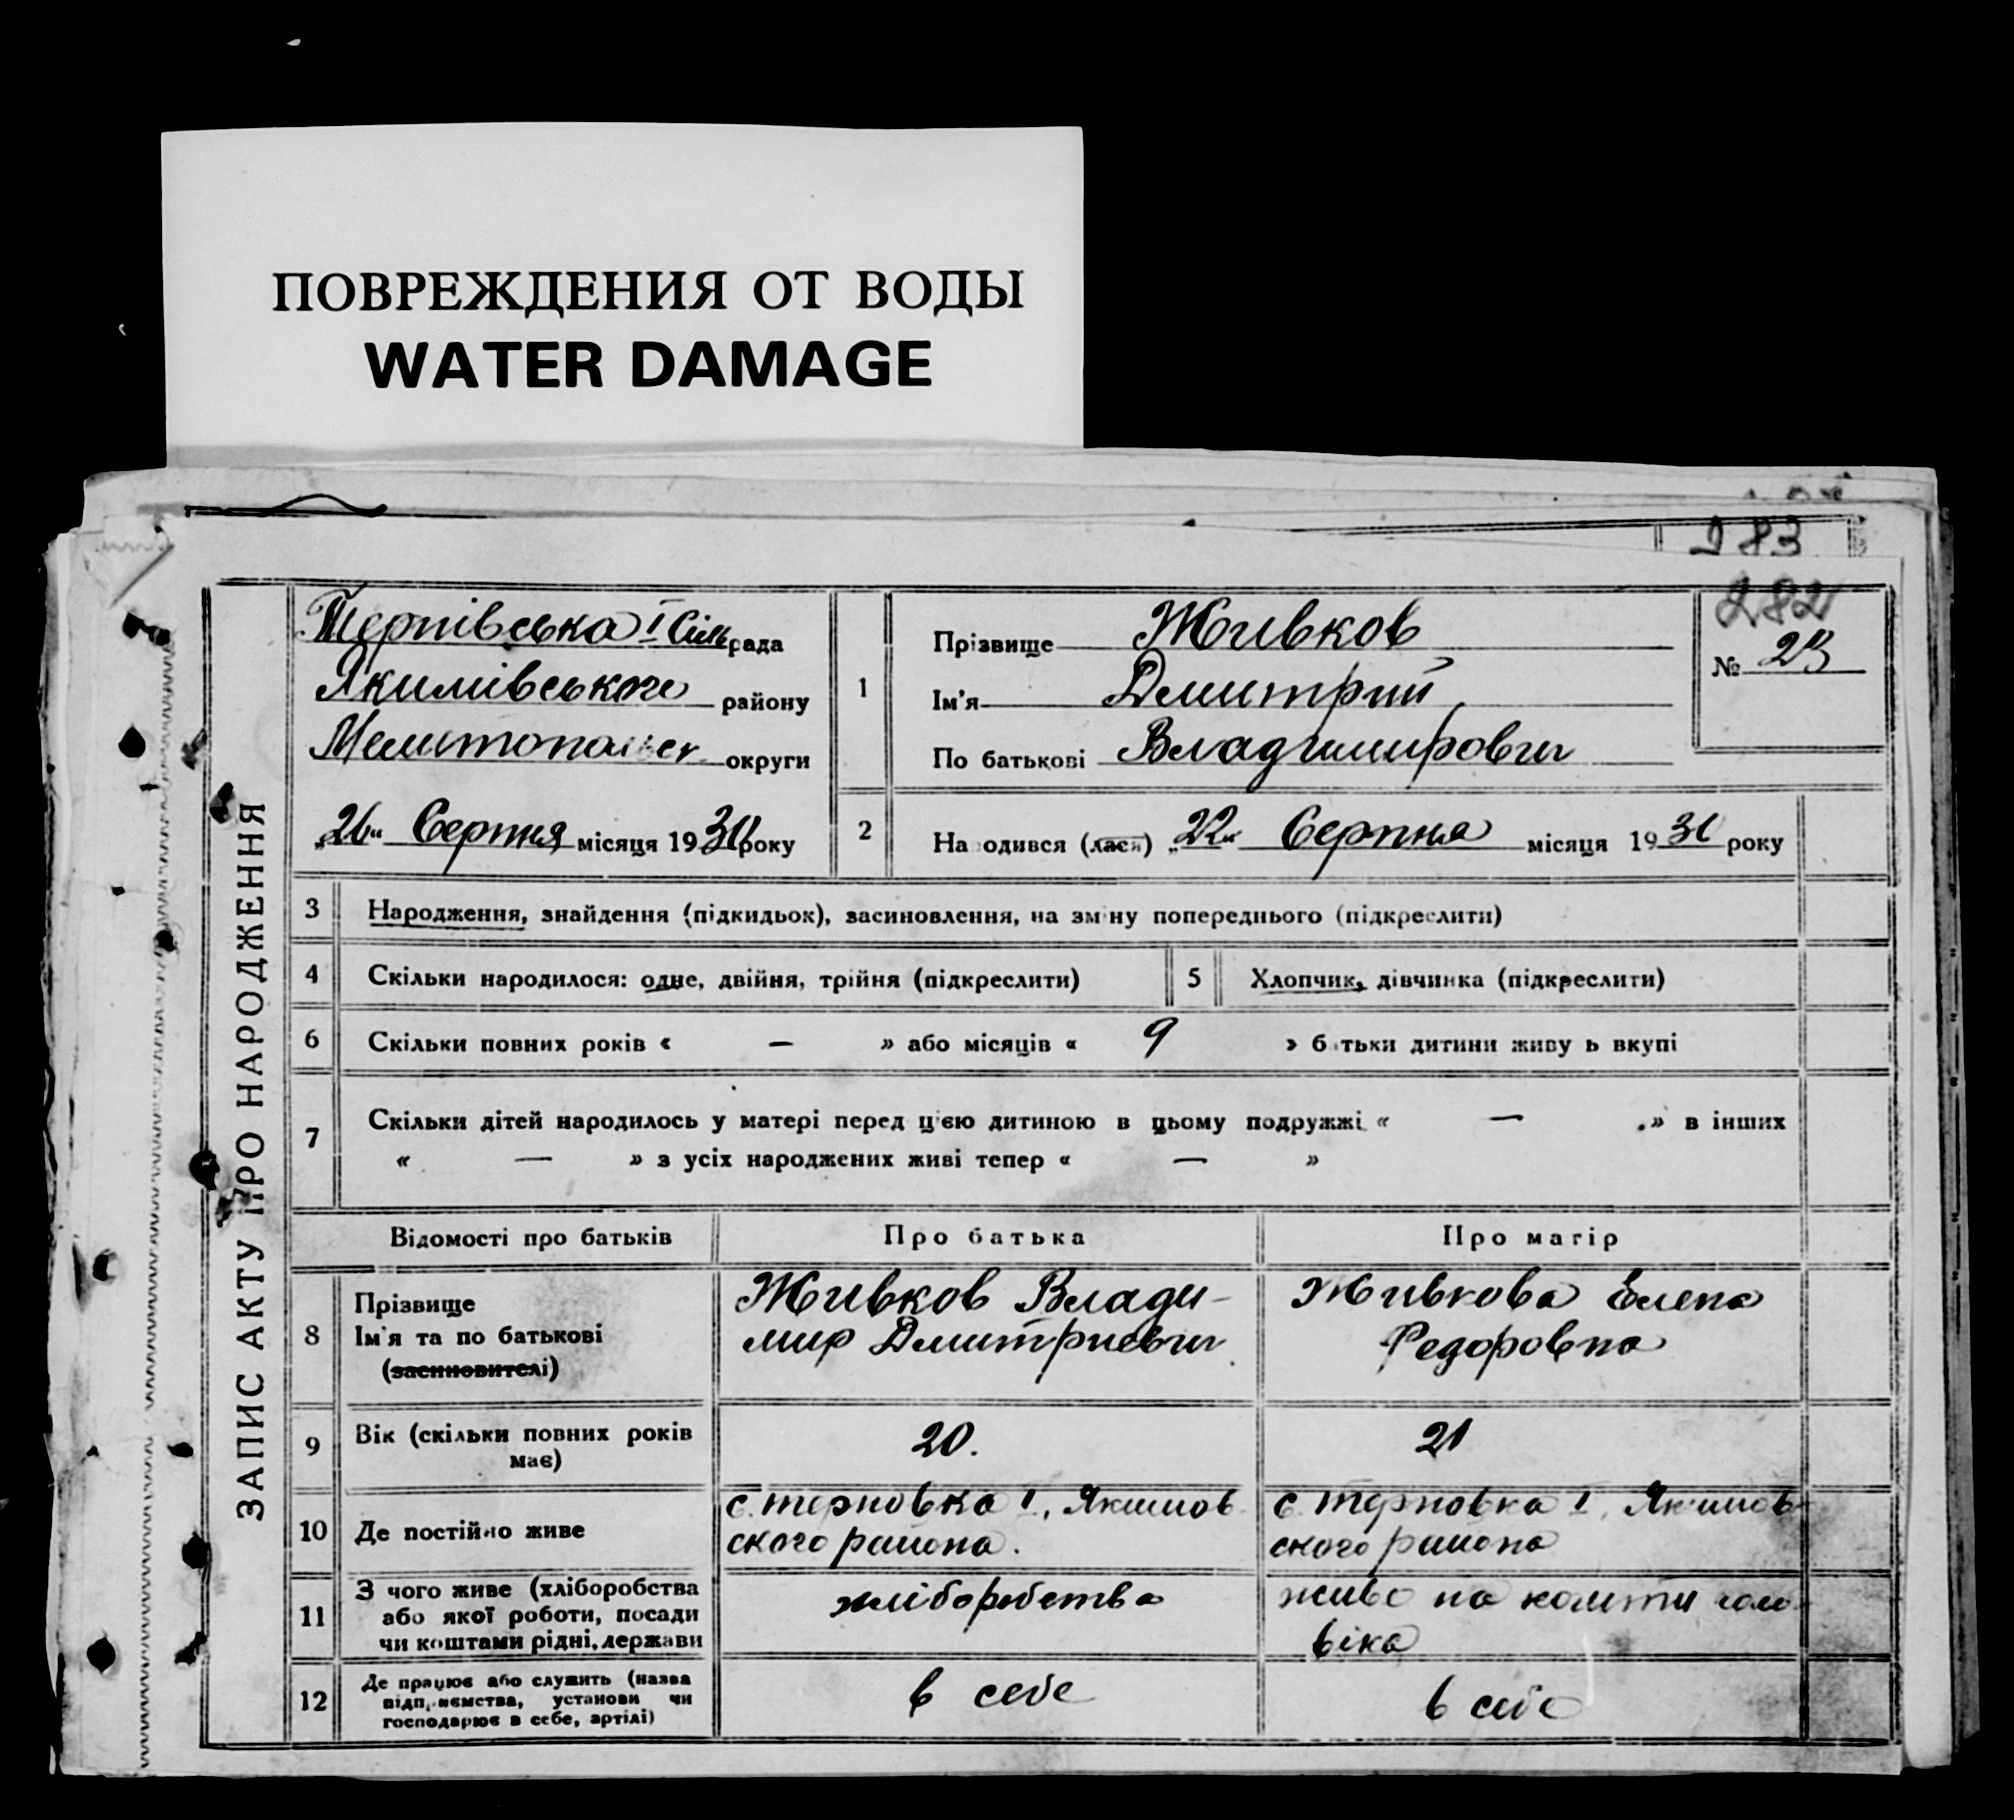 ПОВРЕЖДЕНИЯ ОТ ВОДЫ
WATER DAMAGE
283
282
ЗАПИС АКТУ ПРО НАРОДЖЕННЯ
Тернівська І Сільрада
Якимівського району
Мелитопольск округи
„26“ Серпня місяця 1930 року
1
Прізвище Живков
Ім'я Дмитрий
По батькові Владимирович
№ 23
2
Народився (лася) „22“ Серпня місяця 1930 року
3 Народження, знайдення (підкидьок), засиновлення, на зміну попереднього (підкреслити)
4 Скільки народилося: одне, двійня, трійня (підкреслити)
5 Хлопчик, дівчинка (підкреслити)
6 Скільки повних років « — » або місяців « 9 » батьки дитини живуть вкупі
7 Скільки дітей народилось у матері перед цією дитиною в цьому подружжі « — » в інших
« — » з усіх народжених живі тепер « — »
Відомості про батьків Про батька Про матір
8 Прізвище
Ім'я та по батькові
(засиновителі)
Живков Влади-
мир Дмитриевич
Живкова Елена
Федоровна
9 Вік (скільки повних років
має)
20.
21
10 Де постійно живе
с. терновка І, Якимов
ского района.
с. терновка І, Якимов-
ского района
11 З чого живе (хліборобства
або якої роботи, посади
чи коштами рідні, держави
хліборобства
живе на кошти чоло-
віка
12 Де працює або служить (назва
підприємства, установи чи
господарює в себе, артілі)
в себе
в себе